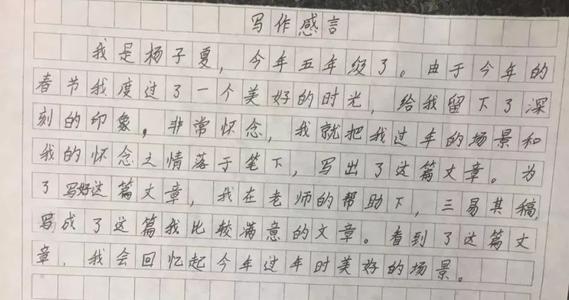 写作感言
我是杨子夏，今年五年级了。由于今年的
春节我度过了一个美好的时光，给我留下了深
刻的印象，非常怀念，我就把我过年的场景和
我的怀念之情落于笔下，写出了这篇文章。为
了写好这篇文章，我在老师的帮助下，三易其稿，
写成了这篇我比较满意的文章。看到了这篇文
章，我会回忆起今年过年时美好的场景。